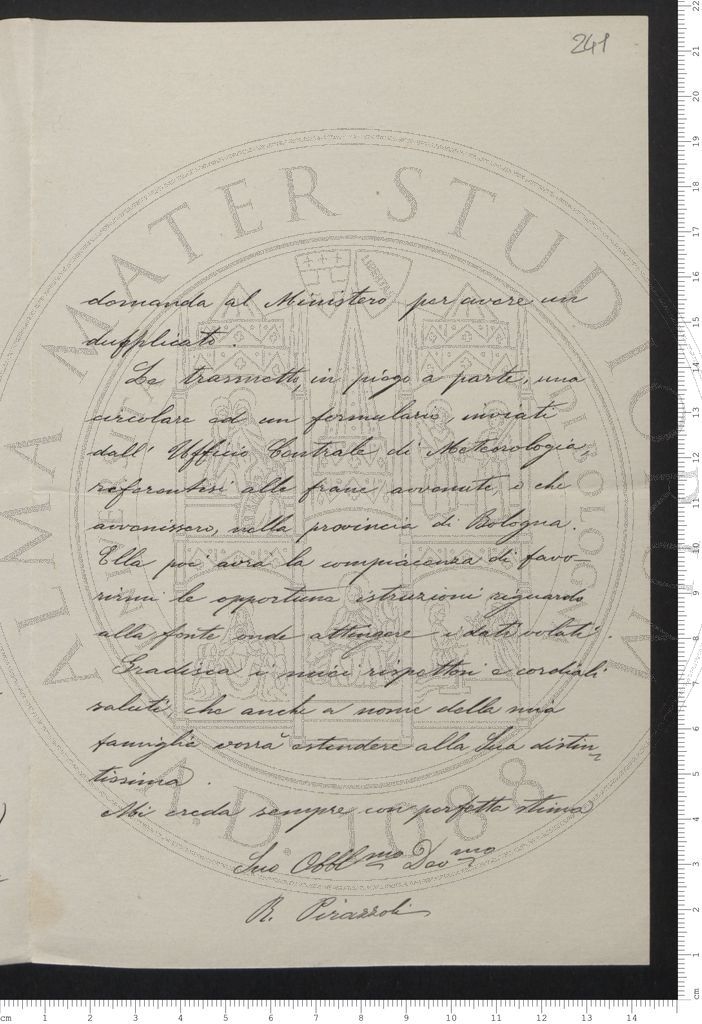 241
domanda al Ministero per avere un
dupplicato.
Le trasmetto, in piego a parte, una
circolare ed un formulario, inviati
dall' Ufficio Centrale di Meteorologia,
referentisi alle frane avvenute, o che
avvenissero, nella provincia di Bologna.
Ella poi avrà la compiacenza di favo
rirmi le opportune istruzioni riguardo
alla fonte onde attingere i dati voluti.
Gradisca i miei rispettosi e cordiali
saluti, che anche a nome della mia
famiglia vorrà estendere alla Sua distin
tissima.
Mi creda sempre con perfetta stima
Suo Obbl.mo Dev.mo
R. Pirazzoli
ALMA MATER STUDIORUM
A.D. 1088
LIBERTAS